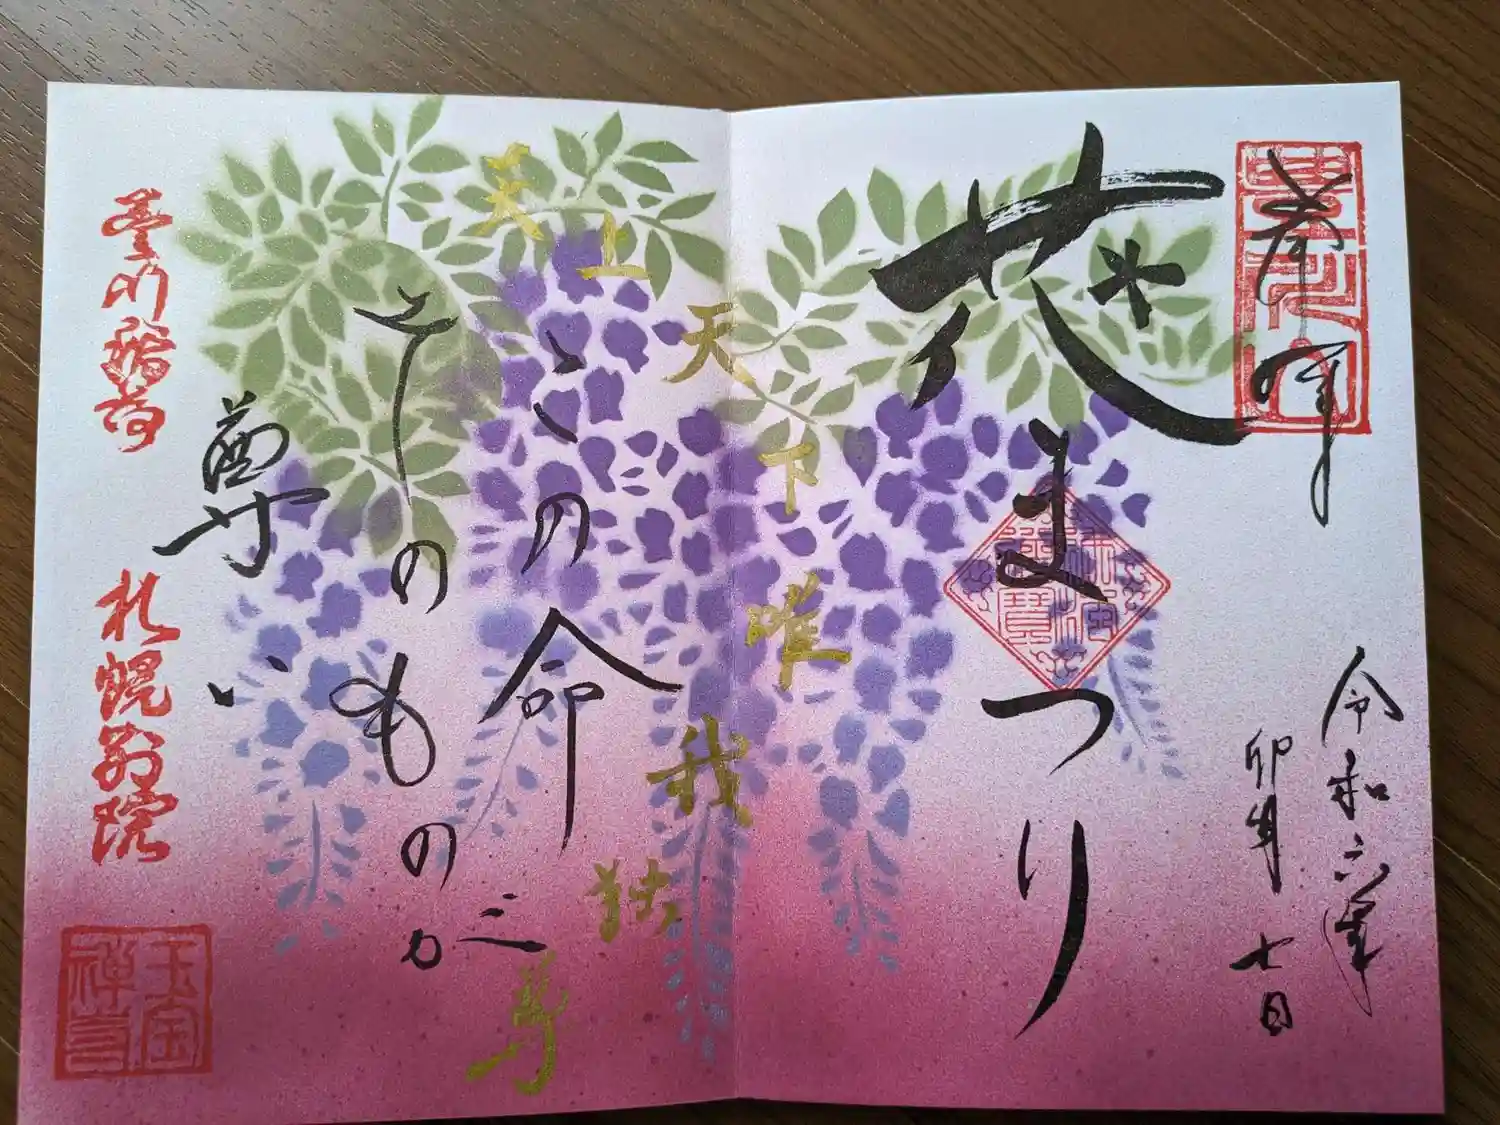 奉拝
令和六年
卯月七日
花まつり
天上天下唯我独尊
この命
そのものが
尊い
豊川稲荷
札幌別院
玉宝禅寺